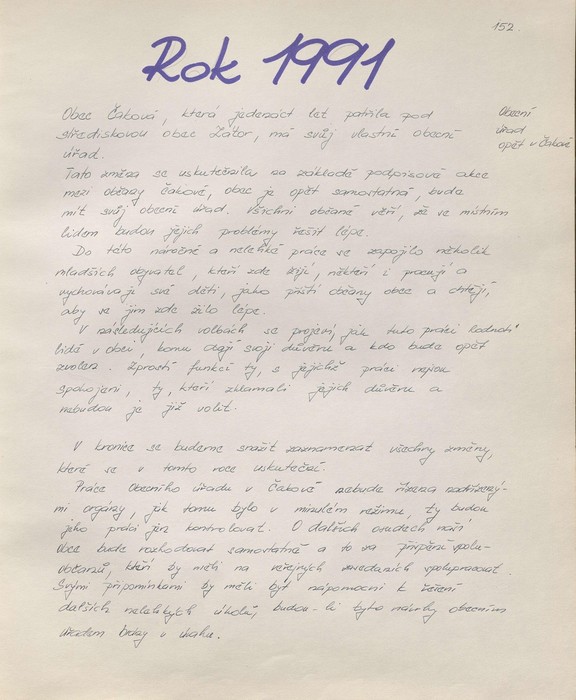 152.
Rok 1991
Obec Čaková, která jedenáct let patřila pod
střediskovou obec Zátor, má svůj vlastní obecní
úřad.
Obecní
úřad
opět v Čakové
Tato změna se uskutečnila na základě podpisové akce
mezi občany Čakové, obec je opět samostatná, bude
mít svůj obecní úřad. Všichni občané věří, že ve místním
lidem budou jejich problémy řešit lépe.
Do této náročné a nelehké práce se zapojilo několik
mladších obyvatel, kteří zde žijí, někteří i pracují a
vychovávají své děti, jako příští občany obce a chtějí,
aby se jim zde žilo lépe.
V následujících volbách se projeví, jak tuto práci hodnotí
lidé v obci, komu dají svoji důvěru a kdo bude opět
zvolen. Zprostí funkcí ty, s jejichž prací nejsou
spokojeni, ty, kteří zklamali jejich důvěru a
nebudou je již volit.
V kronice se budeme snažit zaznamenat všechny změny,
které se v tomto roce uskuteční.
Práce Obecního úřadu v Čakové nebude řízena nadřízený-
mi orgány, jak tomu bylo v minulém režimu, ty budou
jeho práci jen kontrolovat. O dalších osudech naší
obce bude rozhodovat samostatně a to za přispění spolu-
občanů, kteří by měli na veřejných zasedáních spolupracovat.
Svými připomínkami by měli být nápomocni k řešení
dalších nelehkých úkolů, budou-li tyto návrhy obecním
úřadem brány v úvahu.